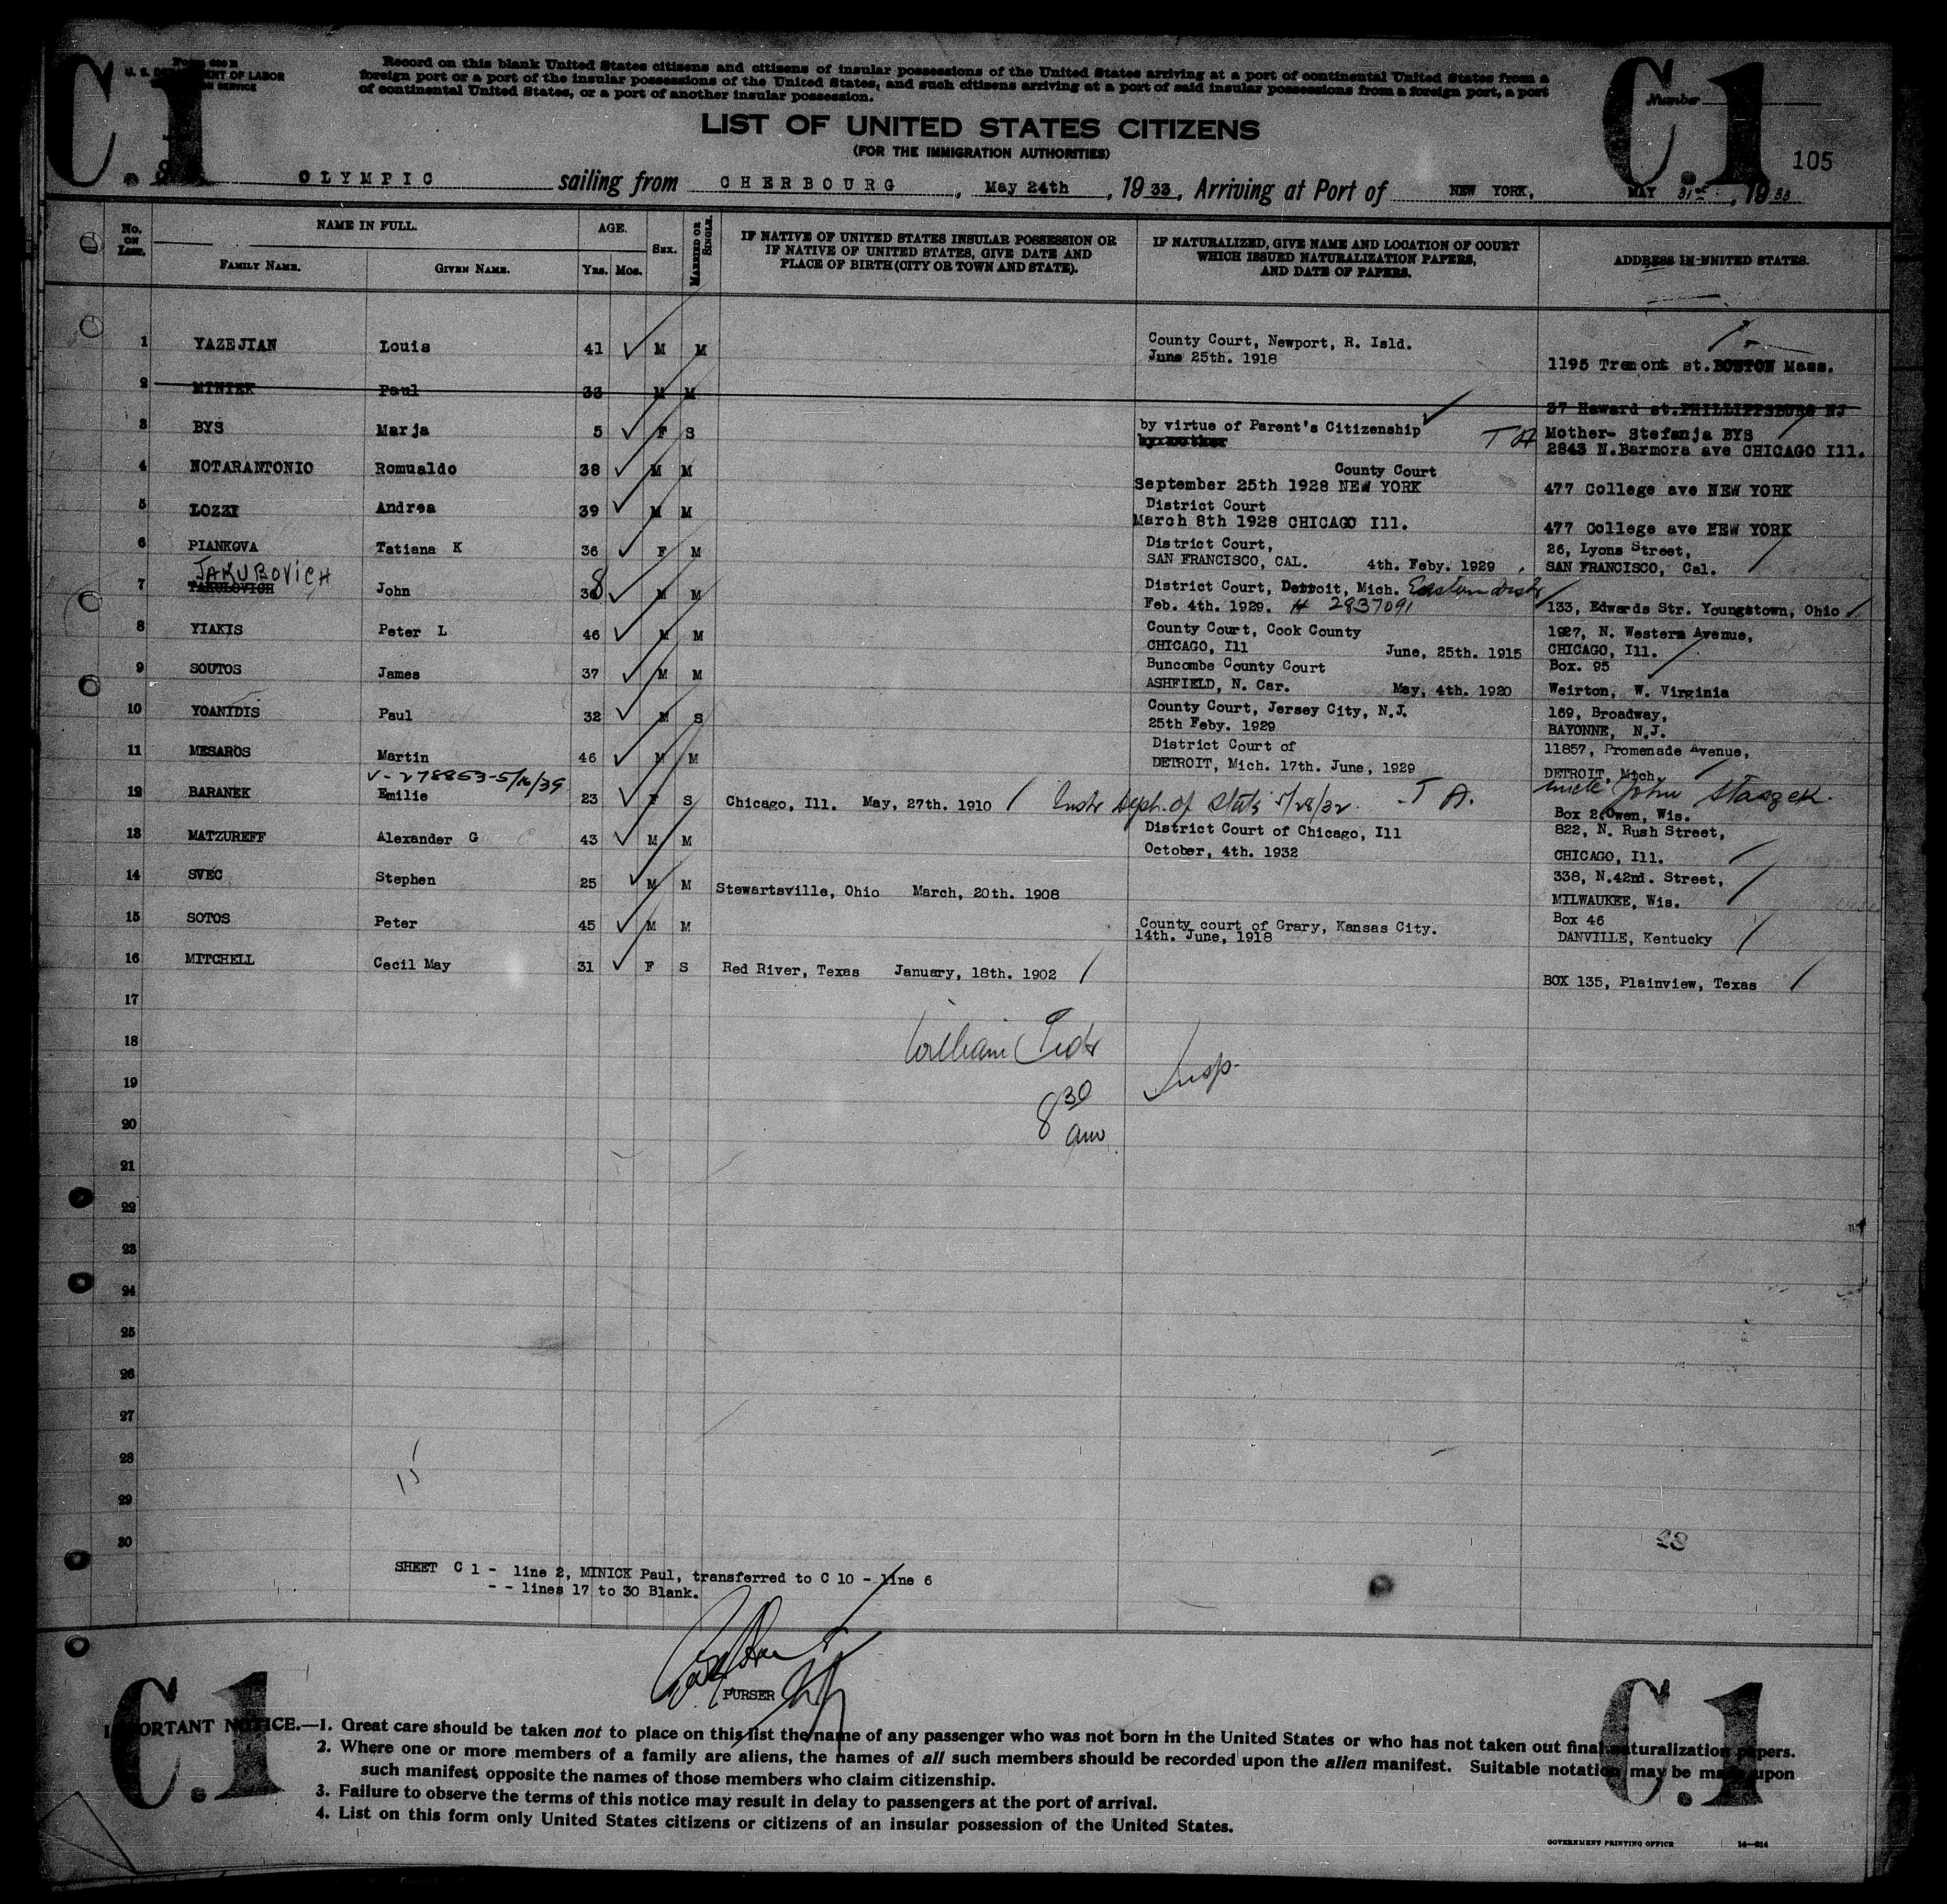 C.1
C.1
Form 630 B
U. S. DEPARTMENT OF LABOR
Record on this blank United States citizens and citizens of insular possessions of the United States arriving at a port of continental United States from a
foreign port or a port of the insular possessions of the United States, and such citizens arriving at a port of said insular possessions from a foreign port, a port
of continental United States, or a port of another insular possession.
Number
LIST OF UNITED STATES CITIZENS
(FOR THE IMMIGRATION AUTHORITIES)
105
OLYMPIC sailing from CHERBOURG, May 24th, 1933, Arriving at Port of NEW YORK, MAY 31st, 1933
No. on List.
NAME IN FULL.
Family Name.
Given Name.
AGE.
Yrs. Mos.
Sex.
Married or Single.
IF NATIVE OF UNITED STATES INSULAR POSSESSION OR
IF NATIVE OF UNITED STATES, GIVE DATE AND
PLACE OF BIRTH (CITY OR TOWN AND STATE).
IF NATURALIZED, GIVE NAME AND LOCATION OF COURT
WHICH ISSUED NATURALIZATION PAPERS,
AND DATE OF PAPERS.
ADDRESS IN UNITED STATES.
1 YAZEJIAN Louis 41 M M County Court, Newport, R. Isld.
June 25th. 1918
1195 Tremont st. BOSTON Mass.
2 MINIEK Paul 33 M M
37 Haward st. PHILLIPPSBURG NJ
3 BYS Marja 5 F S by virtue of Parent's Citizenship T A Mother- Stefanja BYS
2843 N.Barmora ave CHICAGO Ill.
4 NOTARANTONIO Romualdo 38 M M County Court
September 25th 1928 NEW YORK
477 College ave NEW YORK
5 LOZZI Andrea 39 M M District Court
March 8th 1928 CHICAGO Ill.
477 College ave NEW YORK
6 PIANKOVA Tatiana K 36 F M District Court,
SAN FRANCISCO, CAL. 4th. Feby. 1929
26, Lyons Street,
SAN FRANCISCO, Cal.
JAKUBOVICH
7 John 38 M M District Court, Detroit, Mich. Eastern Distr
Feb. 4th. 1929. # 2837091
133, Edwards Str. Youngstown, Ohio
8 YIAKIS Peter L 46 M M County Court, Cook County
CHICAGO, Ill June, 25th. 1915
1927, N. Western Avenue,
CHICAGO, Ill.
9 SOUTOS James 37 M M Buncombe County Court
ASHFIELD, N. Car. May, 4th. 1920
Box. 95
Weirton, W. Virginia
10 YOANIDIS Paul 32 M S County Court, Jersey City, N.J.
25th Feby. 1929
169, Broadway,
BAYONNE, N.J.
11 MESAROS Martin 46 M M District Court of
DETROIT, Mich. 17th. June, 1929
11857, Promenade Avenue,
DETROIT, Mich.
V-278853-5/16/39
12 BARANEK Emilie 23 F S Chicago, Ill. May, 27th. 1910 Dept. of State 5/28/32. T A. uncle John Staszek.
Box 2.Owen, Wis.
13 MATZUREFF Alexander G 43 M M District Court of Chicago, Ill
October, 4th. 1932
822, N. Rush Street,
CHICAGO, Ill.
14 SVEC Stephen 25 M M Stewartsville, Ohio March, 20th. 1908
338, N.42nd. Street,
MILWAUKEE, Wis.
15 SOTOS Peter 45 M M County court of Grary, Kansas City.
14th. June, 1918
Box 46
DANVILLE, Kentucky
16 MITCHELL Cecil May 31 F S Red River, Texas January, 18th. 1902
BOX 135, Plainview, Texas
17
18 William
19 Insp.
8 30
20 am
21
22
23
24
25
26
27
28
29
30
SHEET C 1 - line 2, MINICK Paul, transferred to C 10 - line 6
- - lines 17 to 30 Blank.
PURSER
C.1
C.1
IMPORTANT NOTICE.—1. Great care should be taken not to place on this list the name of any passenger who was not born in the United States or who has not taken out final naturalization papers.
2. Where one or more members of a family are aliens, the names of all such members should be recorded upon the alien manifest. Suitable notation may be made upon
such manifest opposite the names of those members who claim citizenship.
3. Failure to observe the terms of this notice may result in delay to passengers at the port of arrival.
4. List on this form only United States citizens or citizens of an insular possession of the United States.
GOVERNMENT PRINTING OFFICE 14—614